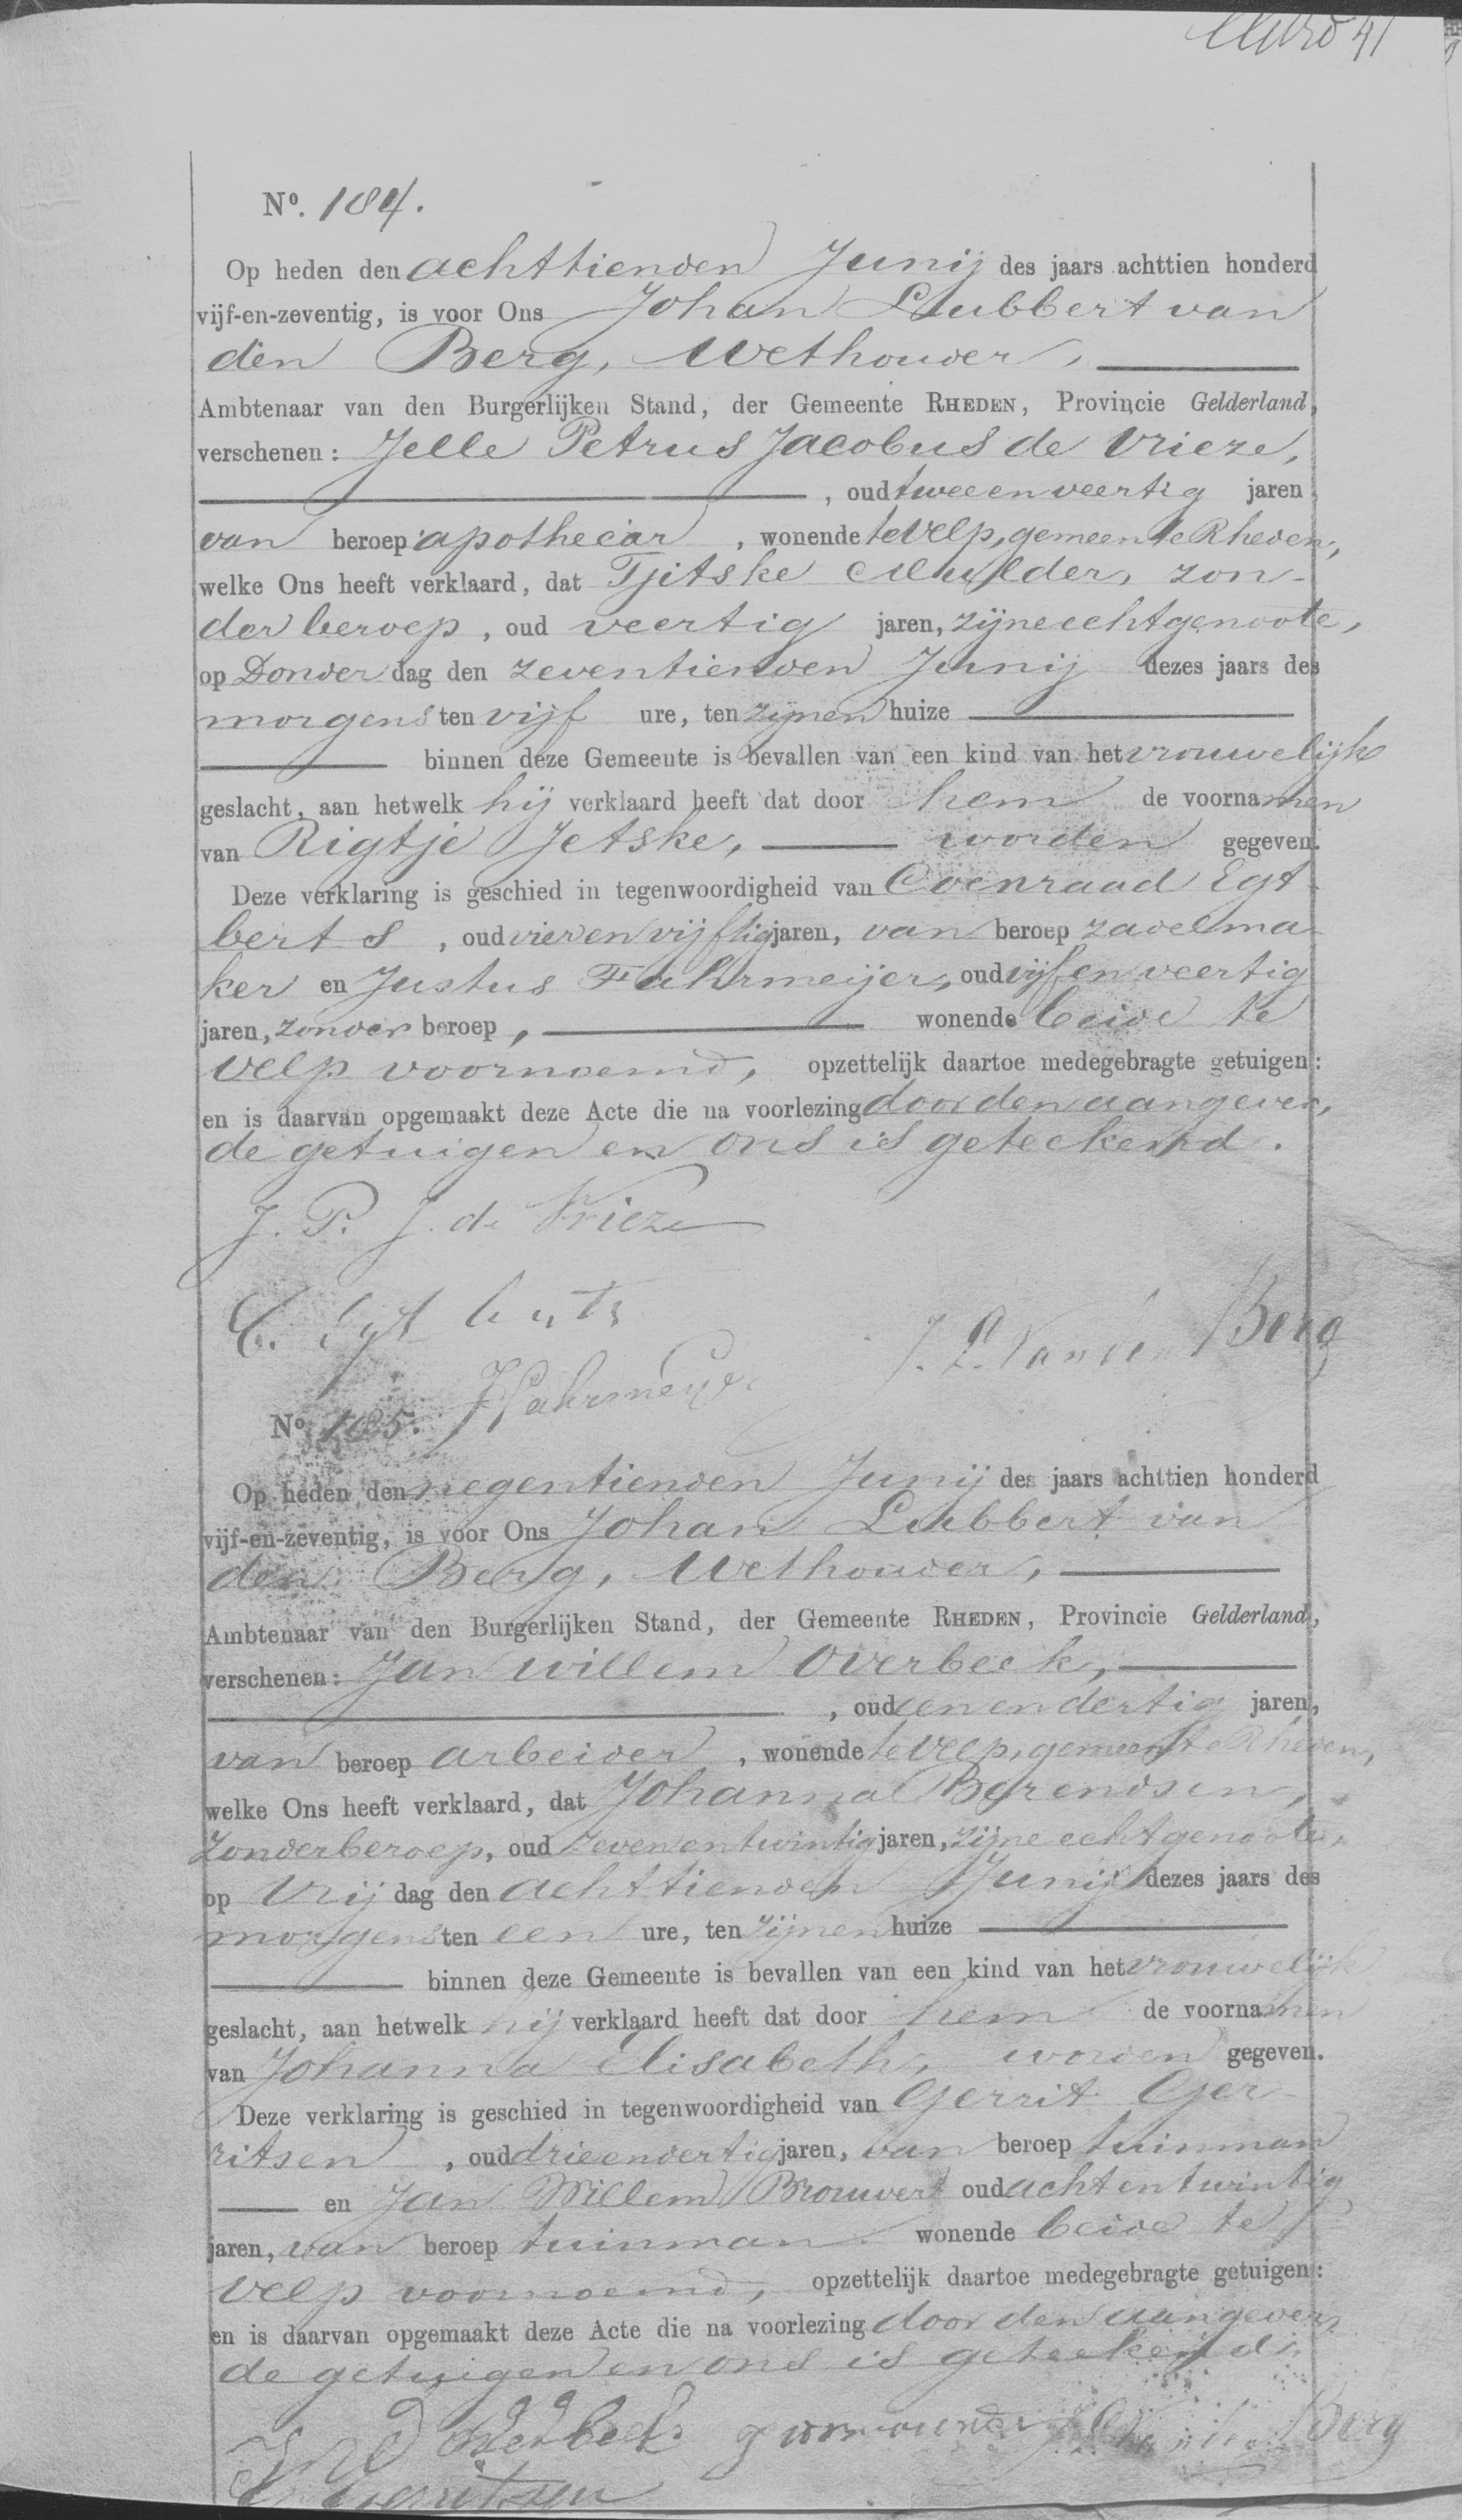 No. 184.
Op heden den achttienden Junij des jaars achttien honderd
vijf-en-zeventig, is voor Ons Johan Lubbert van
den Berg, Wethouder,
Ambtenaar van den Burgerlijken Stand, der Gemeente RHEDEN, Provincie Gelderland,
verschenen: Jelle Petrus Jacobus de Vrieze,
, oud twee en veertig jaren,
van beroep apothecar, wonende te Velp, gemeente Rheden,
welke Ons heeft verklaard, dat Tjitske Mulder, zon-
der beroep, oud veertig jaren, zijne echtgenoote,
op Donderdag den zeventienden Junij dezes jaars des
morgens ten vijf ure, ten zijnen huize
binnen deze Gemeente is bevallen van een kind van het vrouwelijk
geslacht, aan hetwelk hij verklaard heeft dat door hem de voornamen
van Rigtje Jetske, worden gegeven.
Deze verklaring is geschied in tegenwoordigheid van Coenraad Egt-
berts, oud vier en vijftig jaren, van beroep zadelma-
ker en Justus Fahrmeijer, oud vijf en veertig
jaren, zonder beroep, wonende beide te
Velp voornoemd, opzettelijk daartoe medegebragte getuigen:
en is daarvan opgemaakt deze Acte die na voorlezing door den aangever,
de getuigen en ons is geteekend.
J. P. J. de Vrieze
C. Egtberts
J. L. van den Berg
J Fahrmeijer
No. 185.
Op heden den negentienden Junij des jaars achttien honderd
vijf-en-zeventig, is voor Ons Johan Lubbert van
den Berg, Wethouder,
Ambtenaar van den Burgerlijken Stand, der Gemeente RHEDEN, Provincie Gelderland,
verschenen: Jan Willem Overbeek,
, oud een en dertig jaren,
van beroep arbeider, wonende te Velp, gemeente Rheden,
welke Ons heeft verklaard, dat Johanna Berendsen,
zonder beroep, oud zeven en twintig jaren, zijne echtgenoote,
op Vrijdag den achttienden Junij dezes jaars des
morgens ten een ure, ten zijnen huize
binnen deze Gemeente is bevallen van een kind van het vrouwelijk
geslacht, aan hetwelk hij verklaard heeft dat door hem de voornamen
van Johanna Elisabeth, worden gegeven.
Deze verklaring is geschied in tegenwoordigheid van Gerrit Ger-
ritsen, oud drie en dertig jaren, van beroep tuinman
en Jan Willem Brouwer oud acht en twintig
jaren, van beroep tuinman wonende beide te
Velp voornoemd, opzettelijk daartoe medegebragte getuigen:
en is daarvan opgemaakt deze Acte die na voorlezing door den aangever,
de getuigen en ons is geteekend.
Overbeek Berg
Gerritsen